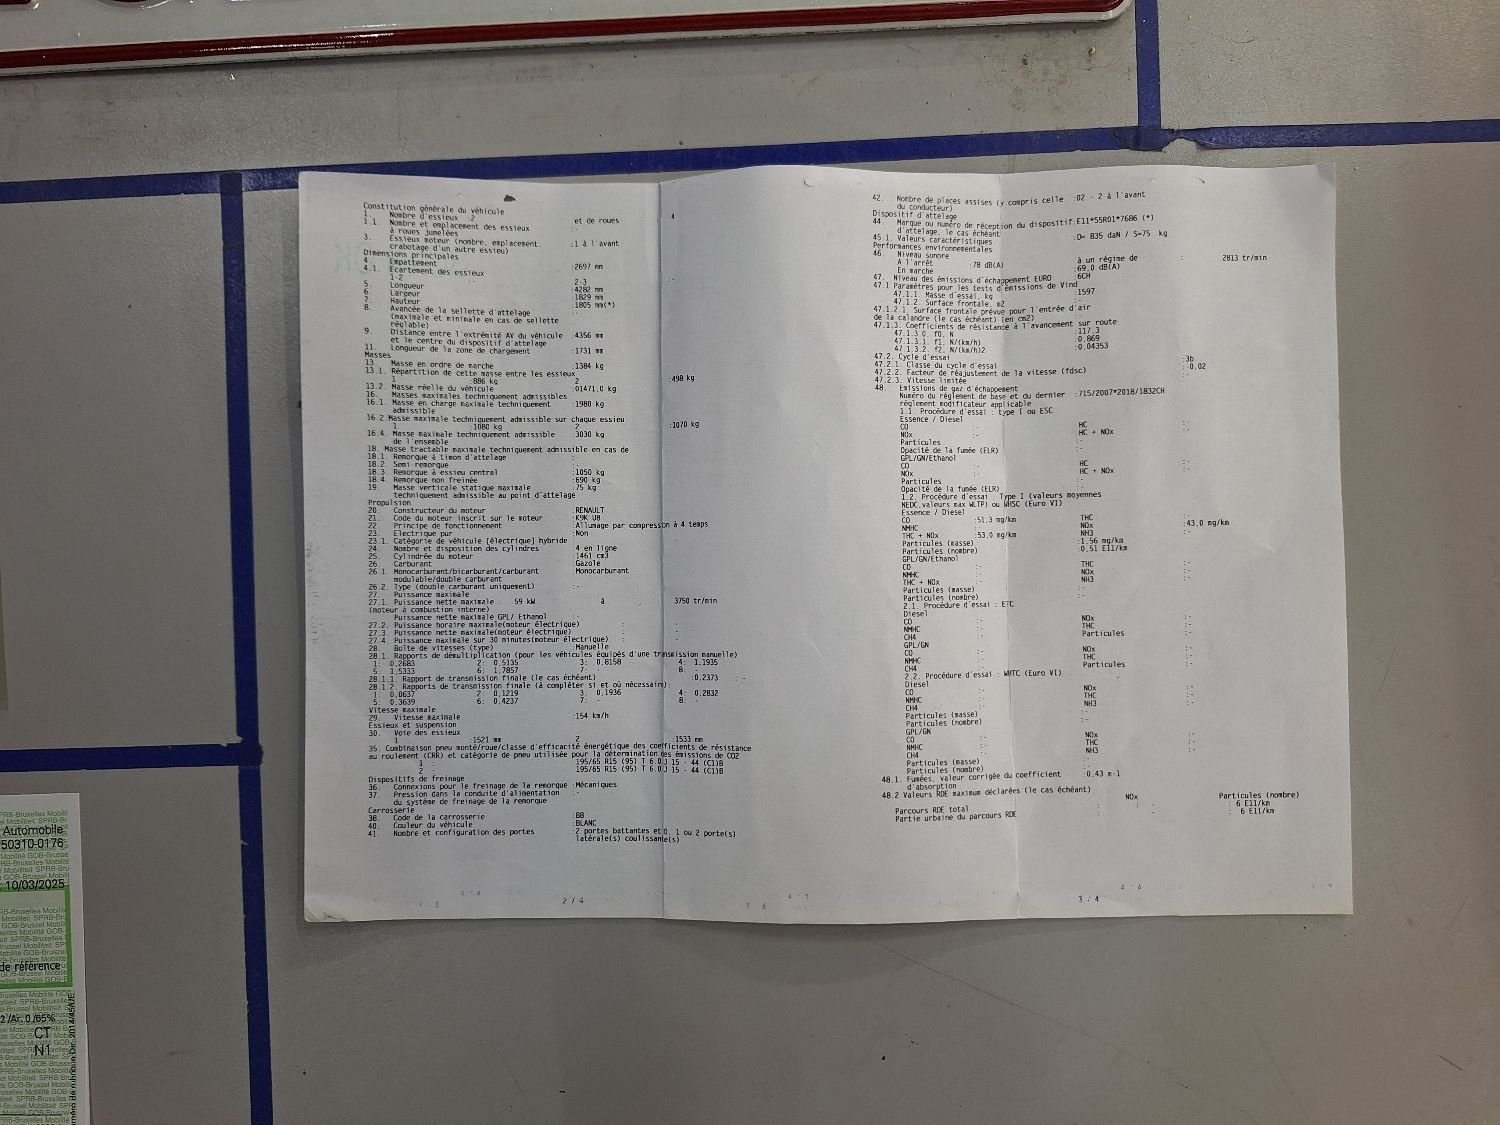 Constitution générale du véhicule
1. Nombre d'essieux :2 et de roues : 4
1.1. Nombre et emplacement des essieux :-
à roues jumelées
3. Essieux moteur (nombre, emplacement, :1 à l'avant
crabotage d'un autre essieu)
Dimensions principales
4. Empattement :2697 mm
4.1. Ecartement des essieux
1-2 :- 2-3 :-
5. Longueur :4282 mm
6. Largeur :1829 mm
7. Hauteur :1805 mm(*)
8. Avancée de la sellette d'attelage :-
(maximale et minimale en cas de sellette
réglable)
9. Distance entre l'extrémité AV du véhicule :4356 mm
et le centre du dispositif d'attelage
11. Longueur de la zone de chargement :1731 mm
Masses
13. Masse en ordre de marche :1384 kg
13.1. Répartition de cette masse entre les essieux
1 :886 kg 2 :498 kg
13.2. Masse réelle du véhicule :01471.0 kg
16. Masses maximales techniquement admissibles
16.1. Masse en charge maximale techniquement :1980 kg
admissible
16.2.Masse maximale techniquement admissible sur chaque essieu
1 :1080 kg 2 :1070 kg
16.4. Masse maximale techniquement admissible :3030 kg
de l'ensemble
18. Masse tractable maximale techniquement admissible en cas de
18.1. Remorque à timon d'attelage :-
18.2. Semi-remorque :-
18.3. Remorque à essieu central :1050 kg
18.4. Remorque non freinée :690 kg
19. Masse verticale statique maximale :75 kg
techniquement admissible au point d'attelage
Propulsion
20. Constructeur du moteur :RENAULT
21. Code du moteur inscrit sur le moteur :K9K U8
22. Principe de fonctionnement :Allumage par compression à 4 temps
23. Electrique pur :Non
23.1. Catégorie de véhicule [électrique] hybride :-
24. Nombre et disposition des cylindres :4 en ligne
25. Cylindrée du moteur :1461 cm3
26. Carburant :Gazole
26.1. Monocarburant/bicarburant/carburant :Monocarburant
modulable/double carburant
26.2. Type (double carburant uniquement) :-
27. Puissance maximale
27.1. Puissance nette maximale : 59 kW à 3750 tr/min
(moteur à combustion interne)
Puissance nette maximale GPL/ Ethanol
27.2. Puissance horaire maximale(moteur électrique) : -
27.3. Puissance nette maximale(moteur électrique) : -
27.4. Puissance maximale sur 30 minutes(moteur électrique) : -
28. Boîte de vitesses (type) :Manuelle
28.1. Rapports de démultiplication (pour les véhicules équipés d'une transmission manuelle)
1: 0,2683 2: 0,5135 3: 0,8158 4: 1,1935
5: 1,5333 6: 1,7857 7: - 8: -
28.1.1. Rapport de transmission finale (le cas échéant) :0,2373 :-
28.1.2. Rapports de transmission finale (à compléter si et où nécessaire):
1: 0,0637 2: 0,1219 3: 0,1936 4: 0,2832
5: 0,3639 6: 0,4237 7: - 8: -
Vitesse maximale
29. Vitesse maximale :154 km/h
Essieux et suspension
30. Voie des essieux
1 :1521 mm 2 :1533 mm
35. Combinaison pneu monté/roue/classe d'efficacité énergétique des coefficients de résistance
au roulement (CRR) et catégorie de pneu utilisée pour la détermination des émissions de CO2
1 : 195/65 R15 (95) T 6.0 J 15 - 44 (C1)B
2 : 195/65 R15 (95) T 6.0 J 15 - 44 (C1)B
Dispositifs de freinage
36. Connexions pour le freinage de la remorque :Mécaniques
37. Pression dans la conduite d'alimentation :-
du système de freinage de la remorque
Carrosserie
38. Code de la carrosserie :BB
40. Couleur du véhicule :BLANC
41. Nombre et configuration des portes :2 portes battantes et 0, 1 ou 2 porte(s)
latérale(s) coulissante(s)
2 / 4
42. Nombre de places assises (y compris celle :02 - 2 à l'avant
du conducteur)
Dispositif d'attelage
44. Marque ou numéro de réception du dispositif:E11*55R01*7686 (*)
d'attelage, le cas échéant
45.1. Valeurs caractéristiques :D= 835 daN / S=75 kg
Performances environnementales
46. Niveau sonore
A l'arrêt :78 dB(A) à un régime de : 2813 tr/min
En marche :69.0 dB(A)
47. Niveau des émissions d'échappement EURO :6CH
47.1 Paramètres pour les tests d'émissions de Vind
47.1.1. Masse d'essai, kg :1597
47.1.2. Surface frontale, m2 :-
47.1.2.1. Surface frontale prévue pour l'entrée d'air
de la calandre (le cas échéant) (en cm2) :-
47.1.3. Coefficients de résistance à l'avancement sur route
47.1.3.0. f0, N :117.3
47.1.3.1. f1, N/(km/h) :0.869
47.1.3.2. f2, N/(km/h)2 :0.04353
47.2. Cycle d'essai
47.2.1. Classe du cycle d'essai :3b
47.2.2. Facteur de réajustement de la vitesse (fdsc) :0.02
47.2.3. Vitesse limitée
48. Emissions de gaz d'échappement
Numéro du règlement de base et du dernier :715/2007*2018/1832CH
règlement modificateur applicable
1.1. Procédure d'essai : type I ou ESC
Essence / Diesel
CO :- HC :-
NOx :- HC + NOx :-
Particules :-
Opacité de la fumée (ELR) :-
GPL/GN/Ethanol
CO :- HC :-
NOx :- HC + NOx :-
Particules :-
Opacité de la fumée (ELR) :-
1.2. Procédure d'essai : Type I (valeurs moyennes
NEDC,valeurs max WLTP) ou WHSC (Euro VI)
Essence / Diesel
CO :51.3 mg/km THC :-
NMHC :- NOx :43.0 mg/km
THC + NOx :53.0 mg/km NH3 :-
Particules (masse) :1.56 mg/km
Particules (nombre) :0.51 E11/km
GPL/GN/Ethanol
CO :- THC :-
NMHC :- NOx :-
THC + NOx :- NH3 :-
Particules (masse) :-
Particules (nombre) :-
2.1. Procédure d'essai : ETC
Diesel
CO :- NOx :-
NMHC :- THC :-
CH4 :- Particules :-
GPL/GN
CO :- NOx :-
NMHC :- THC :-
CH4 :- Particules :-
2.2. Procédure d'essai : WHTC (Euro VI)
Diesel
CO :- NOx :-
NMHC :- THC :-
CH4 :- NH3 :-
Particules (masse) :-
Particules (nombre) :-
GPL/GN
CO :- NOx :-
NMHC :- THC :-
CH4 :- NH3 :-
Particules (masse) :-
Particules (nombre) :-
48.1. Fumées, valeur corrigée du coefficient :0.43 m-1
d'absorption
48.2 Valeurs RDE maximum déclarées (le cas échéant)
NOx Particules (nombre)
Parcours RDE total : - : 6 E11/km
Partie urbaine du parcours RDE : - : 6 E11/km
3 / 4
Automobile
50310-0176
: 10/03/2025
de référence
2 /Ar. 0 /65%
CT
N1